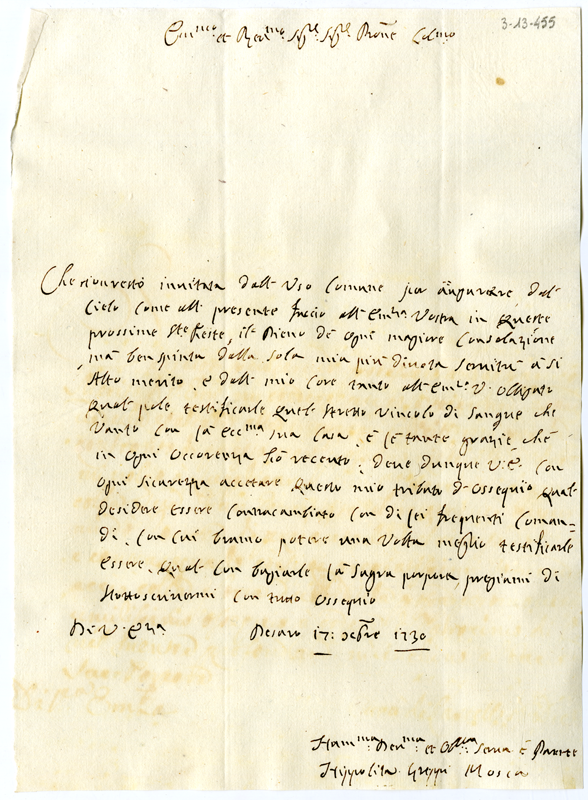 3-13-455
Em.mo et Rev.mo Sig.re Sig.re Prone Col.mo
Che non resto invitata dall Uso Comune per augurare dal
Cielo Come all presente faccio all Em.za Vostra in queste
prossime S.te feste, il Pieno de ogni magiore Consolazione
ma ben spinta dalla sola mia più divota servitù a si
Alto merito, e dall mio Core tanto all Em.za V. Obligato
qual pole testificarle quel stretto vincolo di sangue che
Vanto Con la Ecc.ma sua Casa, e le tante grazie che
in ogni occorenza hò receuto, deve dunque V.E. Con
ogni sicurezza accetare questo mio tributo d'ossequio qual
desidere essere Contracambiato Con di lei frequenti Coman=
di, Con Cui bramo potere una Volta meglio testificarle
essere, qual Con bagiarle la Sagra porpora, pregiami di
Sottoscrivermi Con tutto ossequio
Di V. Em.za Pesaro 17: Xbre 1730
Hum.ma Dev.ma et Ob.ma Serva e Parente
Hippolita Greppi Mosca